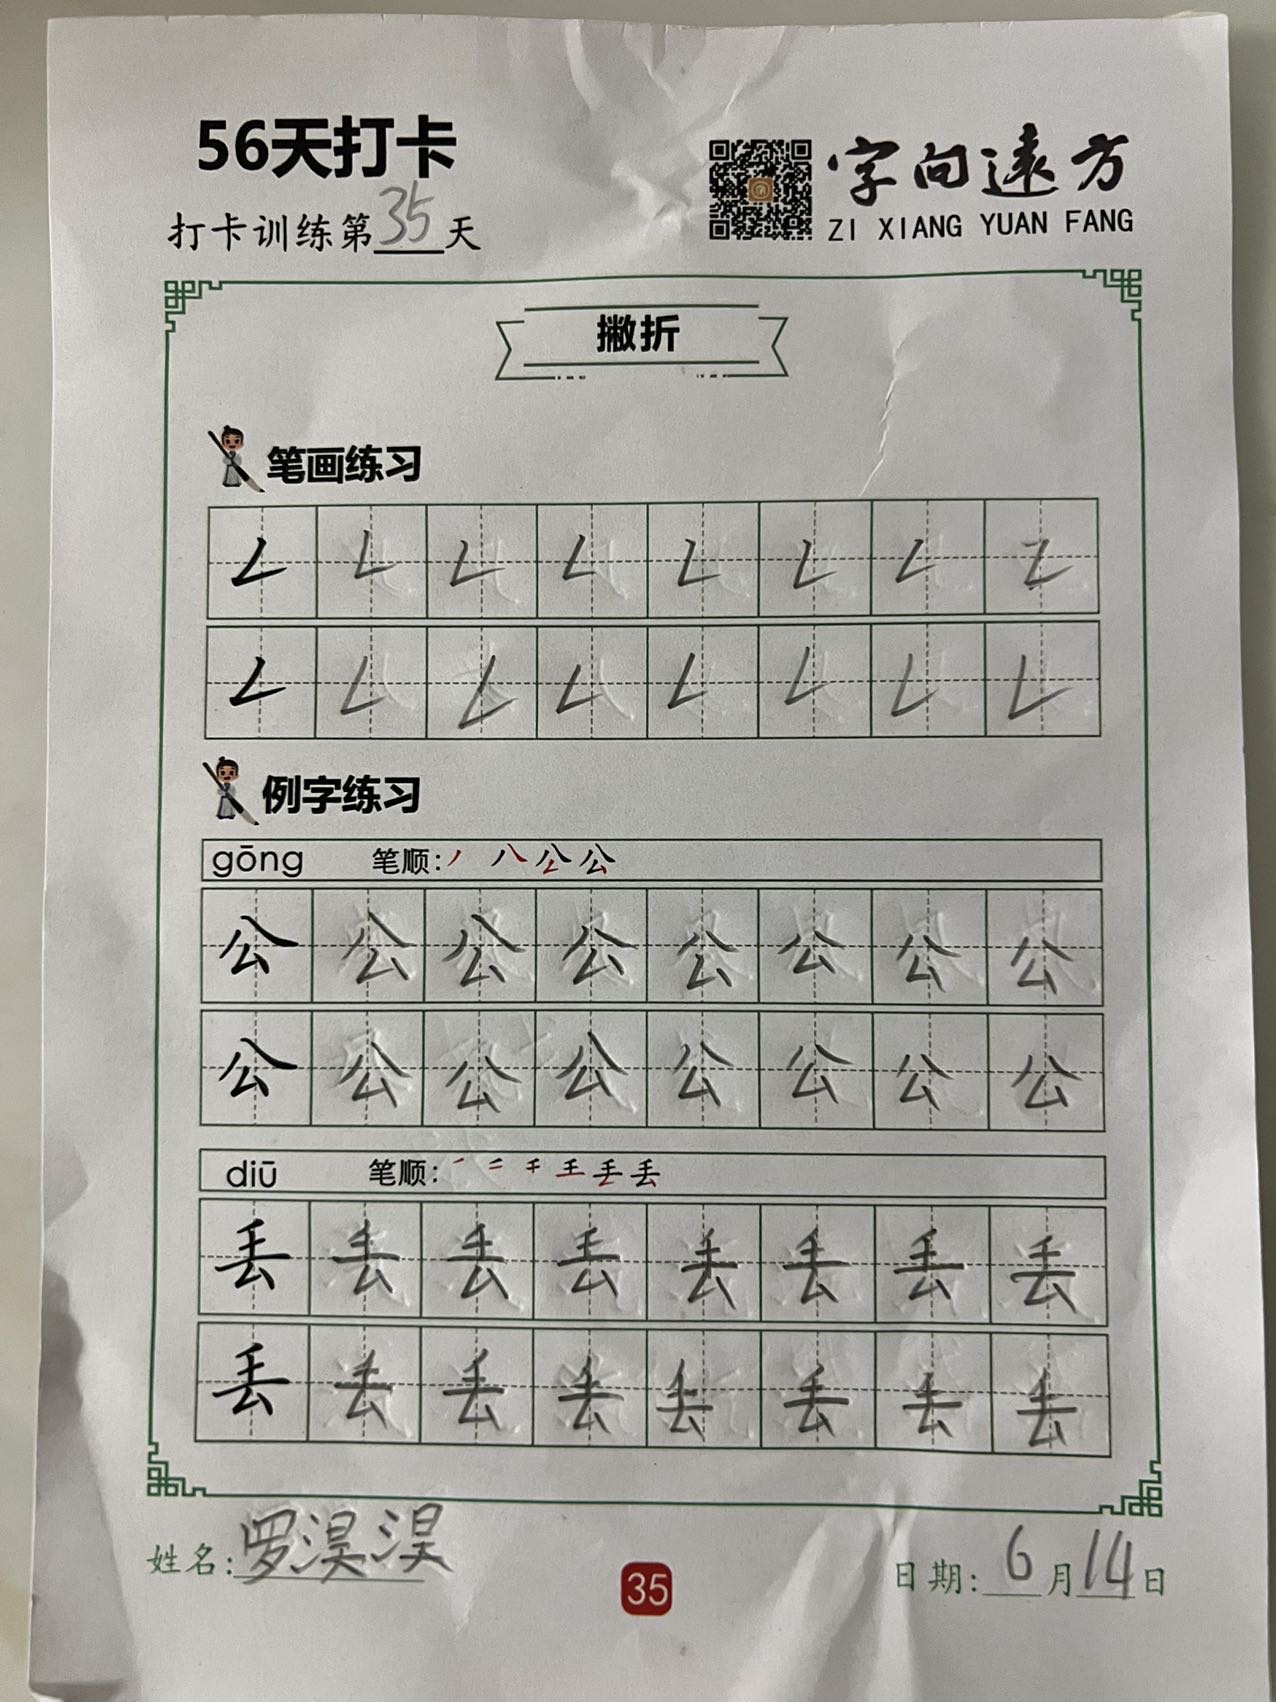 56天打卡
打卡训练第35天
字向远方
ZI XIANG YUAN FANG
撇折
笔画练习
𠃋 𠃋 𠃋 𠃋 𠃋 𠃋 𠃋 𠃋
𠃋 𠃋 𠃋 𠃋 𠃋 𠃋 𠃋 𠃋
例字练习
gōng 笔顺: 丿 八 公 公
公 公 公 公 公 公 公 公
公 公 公 公 公 公 公 公
diū 笔顺: 一 二 千 王 丢 丢
丢 丢 丢 丢 丢 丢 丢 丢
丢 丢 丢 丢 丢 丢 丢 丢
姓名: 罗淏淏
35
日期: 6月14日